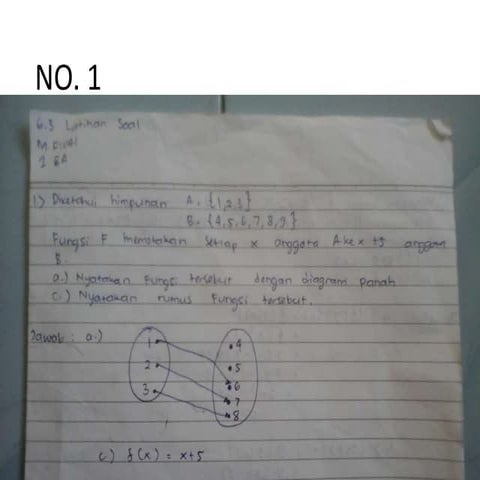 NO. 1
6.3 Latihan Soal
M.
1) Diketahui himpunan A = {1,2,3}
B = {4,5,6,7,8,9}
Fungsi F memetakan setiap x anggota A ke x +5 anggota
B.
a.) Nyatakan Fungsi tersebut dengan diagram panah
c.) Nyatakan rumus Fungsi tersebut.
Jawab : a.)
1 4
2 5
3 6
7
8
c) f(x) = x+5